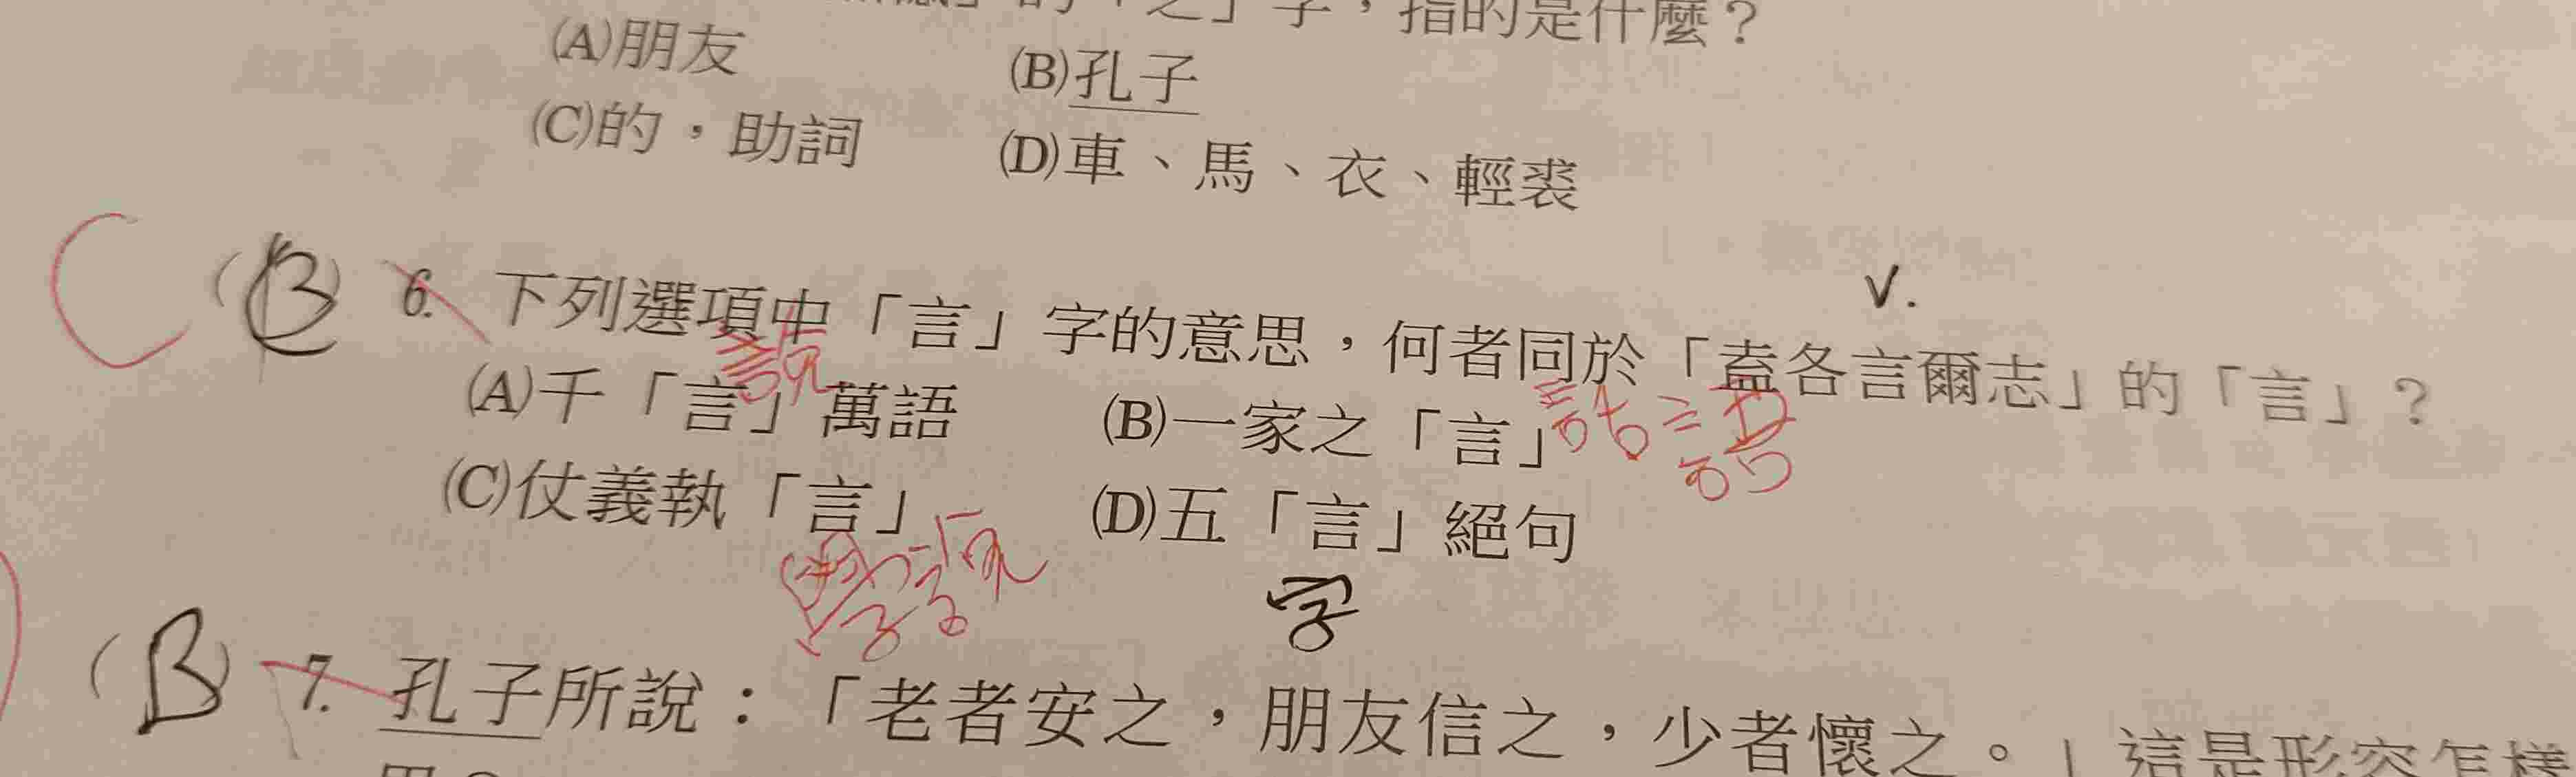 的「之」字，指的是什麼？
(A)朋友 (B)孔子
(C)的，助詞 (D)車、馬、衣、輕裘
C (B) 6. 下列選項中「言」字的意思，何者同於「盍各言爾志」的「言」？
V.
(A)千「言」萬語 (B)一家之「言」
(C)仗義執「言」 (D)五「言」絕句
字
(B) 7. 孔子所說：「老者安之，朋友信之，少者懷之。」這是形容怎樣